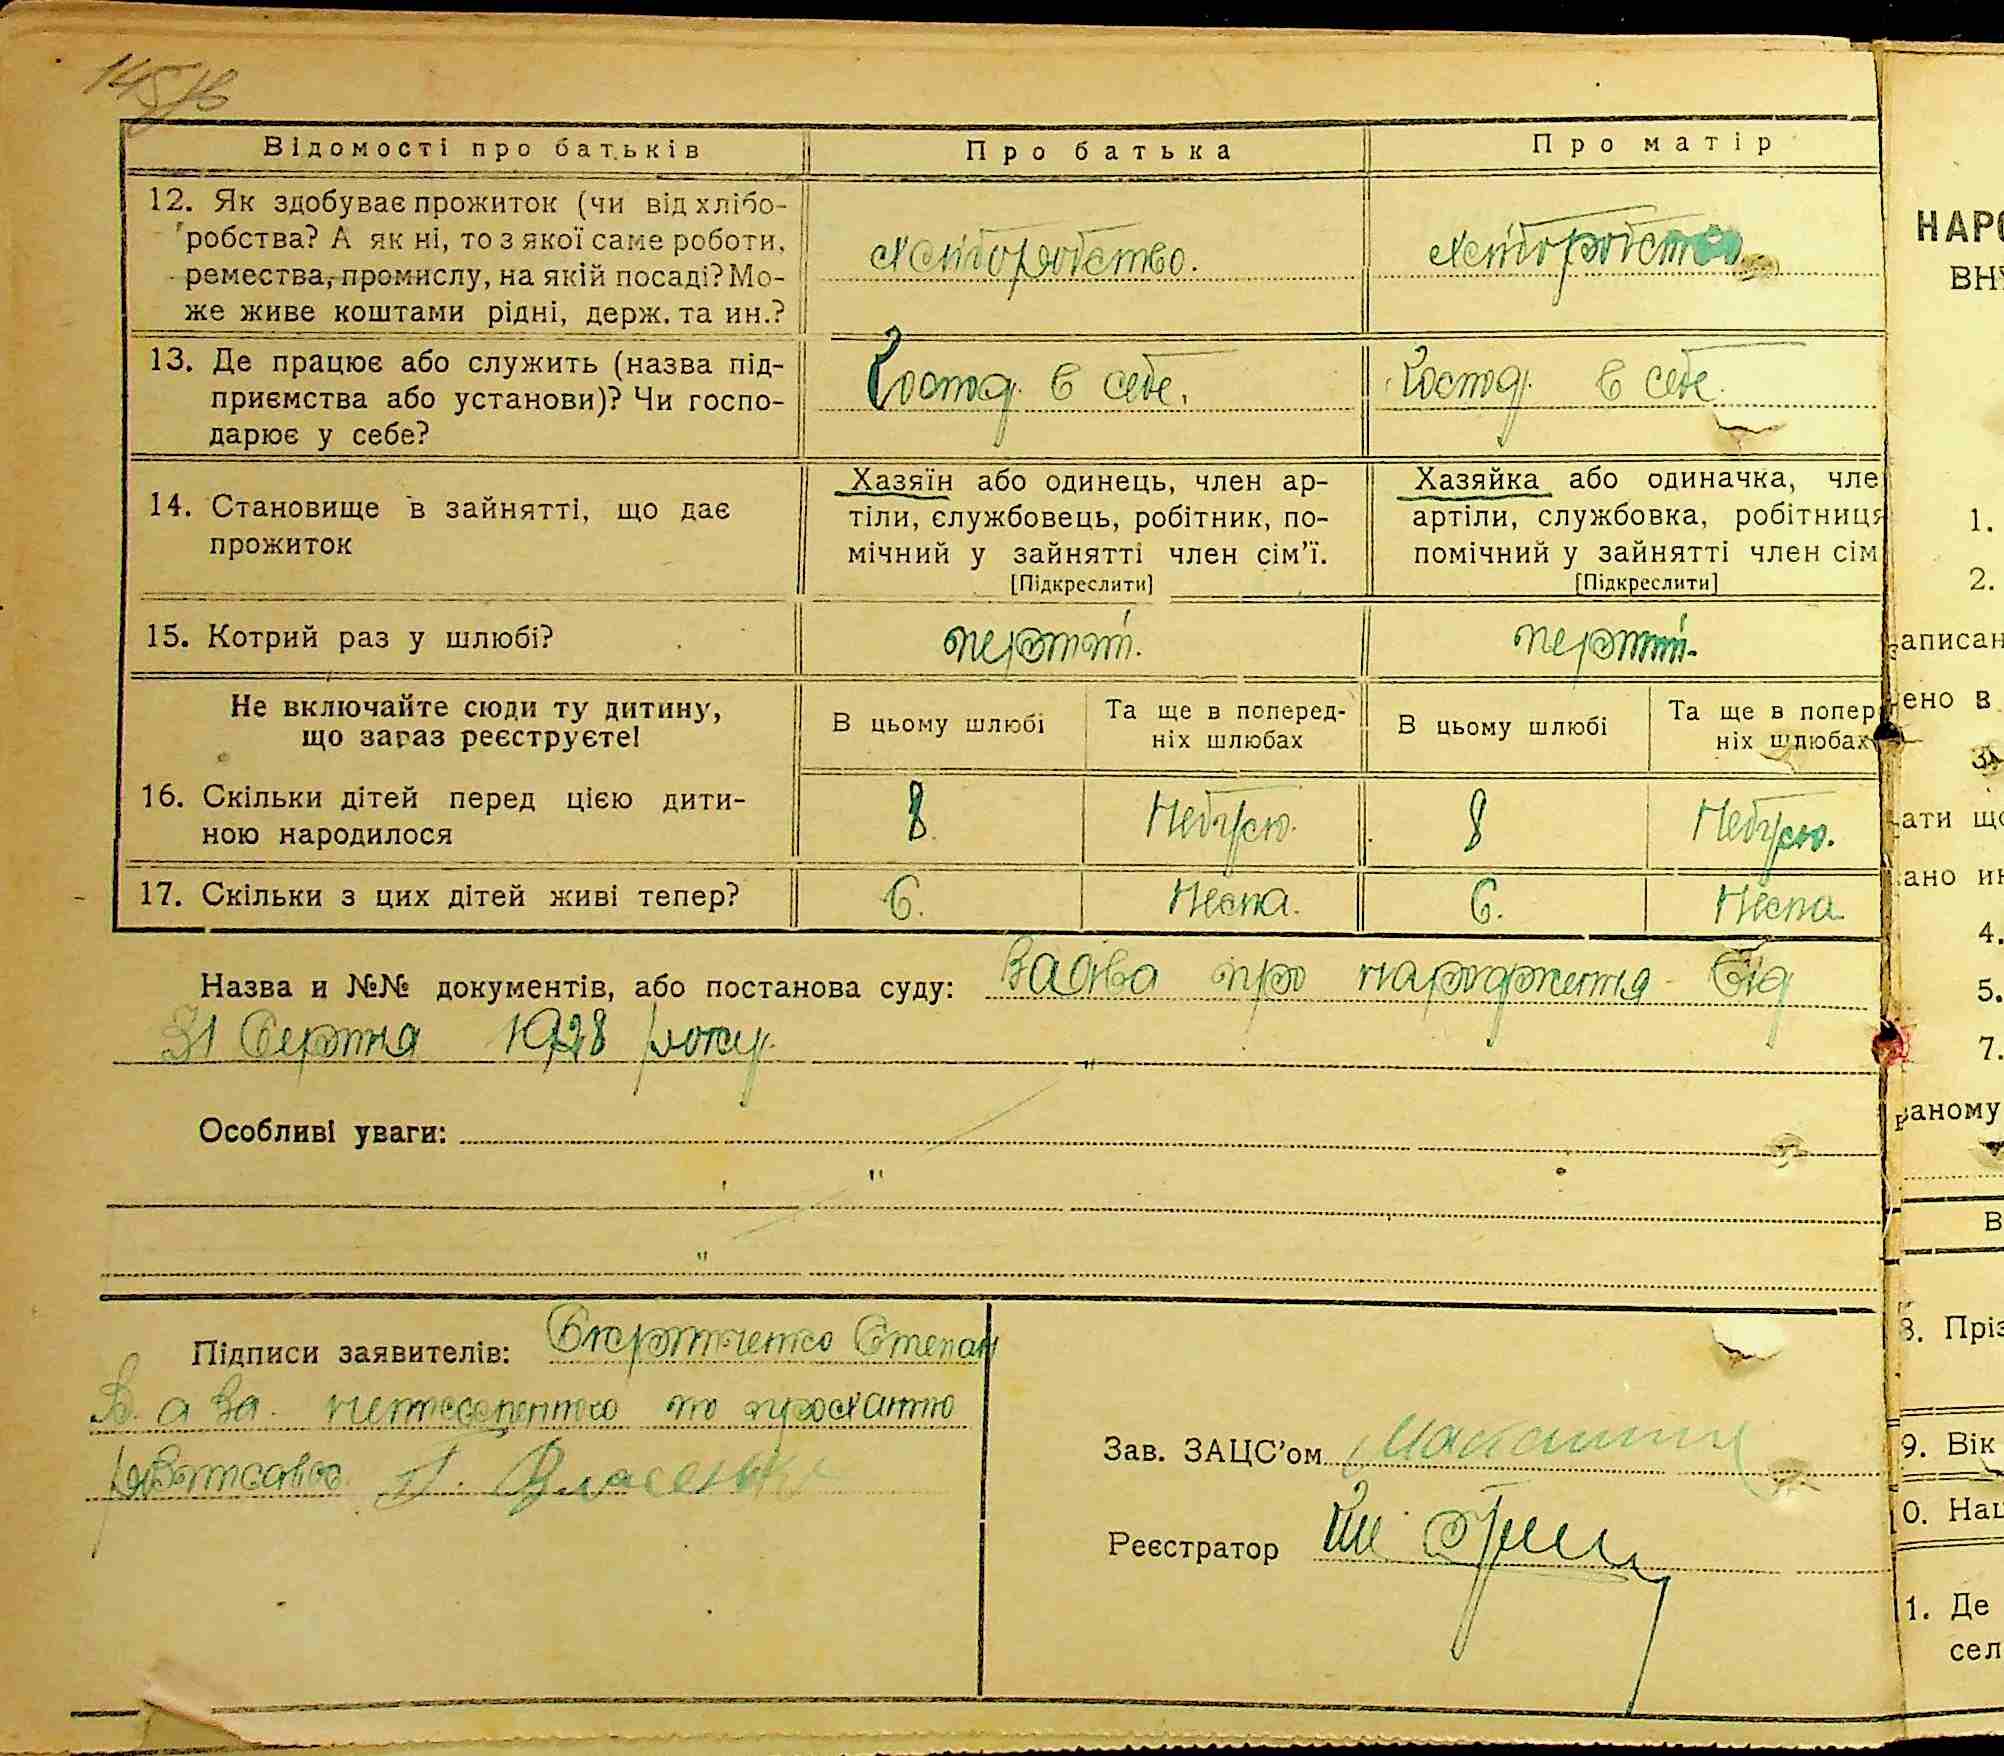 Відомості про батьків
Про батька
Про матір
12. Як здобуває прожиток (чи від хлібо-
робства? А як ні, то з якої саме роботи,
ремества, промислу, на якій посаді? Мо-
же живе коштами рідні, держ. та ин.?
хліборобство.
хліборобство
13. Де працює або служить (назва під-
приємства або установи)? Чи госпо-
дарює у себе?
Господ. в себе.
Господ. в себе.
14. Становище в зайнятті, що дає
прожиток
Хазяїн або одинець, член ар-
тіли, службовець, робітник, по-
мічний у зайнятті член сім'ї.
[Підкреслити]
Хазяйка або одиначка, чле
артіли, службовка, робітниця
помічний у зайнятті член сім
[Підкреслити]
15. Котрий раз у шлюбі?
перший.
перший.
Не включайте сюди ту дитину,
що зараз реєструєте!
В цьому шлюбі
Та ще в поперед-
ніх шлюбах
В цьому шлюбі
Та ще в попер
ніх шлюбах
16. Скільки дітей перед цією дити-
ною народилося
8.
Небусю.
8
Небусю.
17. Скільки з цих дітей живі тепер?
6.
Нема.
6.
Нема.
Назва и №№ документів, або постанова суду: Заява про народження від
31 Серпня 1928 року.
Особливі уваги:
Підписи заявителів: Степан
В. а за неписьменного по проханню
Власенко
Зав. ЗАЦС'ом
Реєстратор
НАРО
ВНУ
1.
2.
аписан
ено в
3.
ати що
ано ин
4.
5.
7.
аному
В
8. Пріз
9. Вік
0. Нац
1. Де
сел